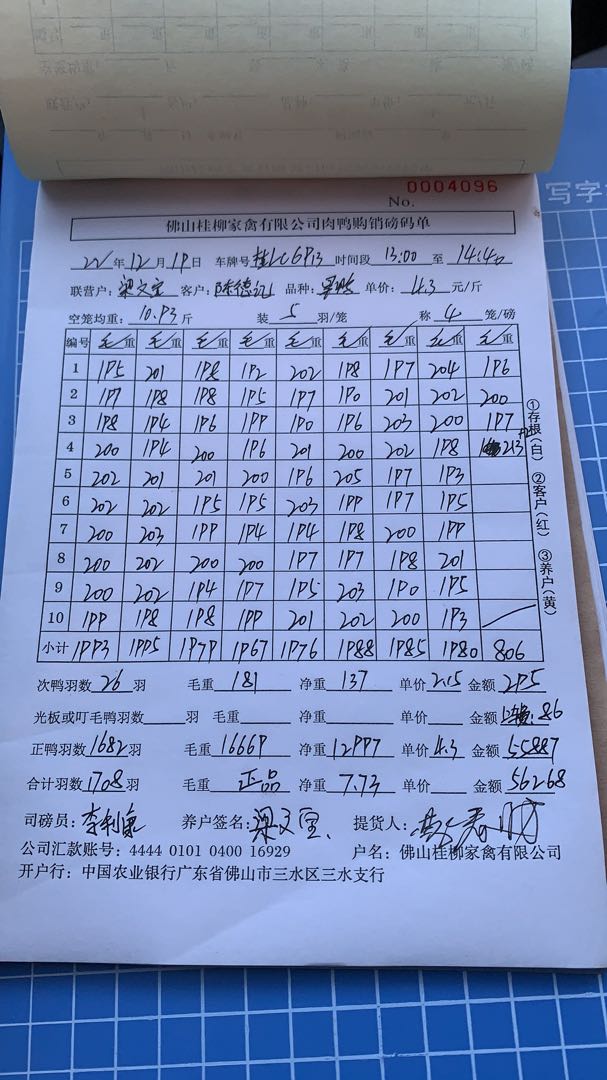 0004096
No.
写字
佛山桂柳家禽有限公司肉鸭购销磅码单
22年12月19日 车牌号 桂LC6913 时间段 13:00 至 14:40
联营户: 梁文宝 客户: 陈德 品种: 单价: 4.3 元/斤
空笼均重: 10.93斤 装 5 羽/笼 称 4 笼/磅
编号 毛/重 毛/重 毛/重 毛/重 毛/重 毛/重 毛/重 毛/重 毛/重
1 195 201 198 192 202 198 197 204 196
2 197 198 198 195 197 190 201 202 200
3 198 194 196 199 190 196 203 200 197
4 200 194 200 196 201 200 202 198 213
5 202 201 201 200 196 205 197 193
6 202 202 195 195 203 199 197 195
7 200 203 199 194 194 198 200 199
8 200 202 200 200 197 197 198 201
9 200 202 194 197 195 203 190 195
10 199 198 198 199 201 202 200 193
小计 1993 1995 1979 1967 1976 1988 1985 1980 806
①存根(白) ②客户(红) ③养户(黄)
次鸭羽数 26 羽 毛重 181 净重 137 单价 2.15 金额 295
光板或叮毛鸭羽数 羽 毛重 净重 单价 金额 86
正鸭羽数 1682 羽 毛重 16669 净重 12997 单价 4.3 金额 55887
合计羽数 1708 羽 毛重 正品 净重 7.73 单价 金额 56268
司磅员: 李利康 养户签名: 梁文宝 提货人:
公司汇款账号: 4444 0101 0400 16929 户名: 佛山桂柳家禽有限公司
开户行: 中国农业银行广东省佛山市三水区三水支行